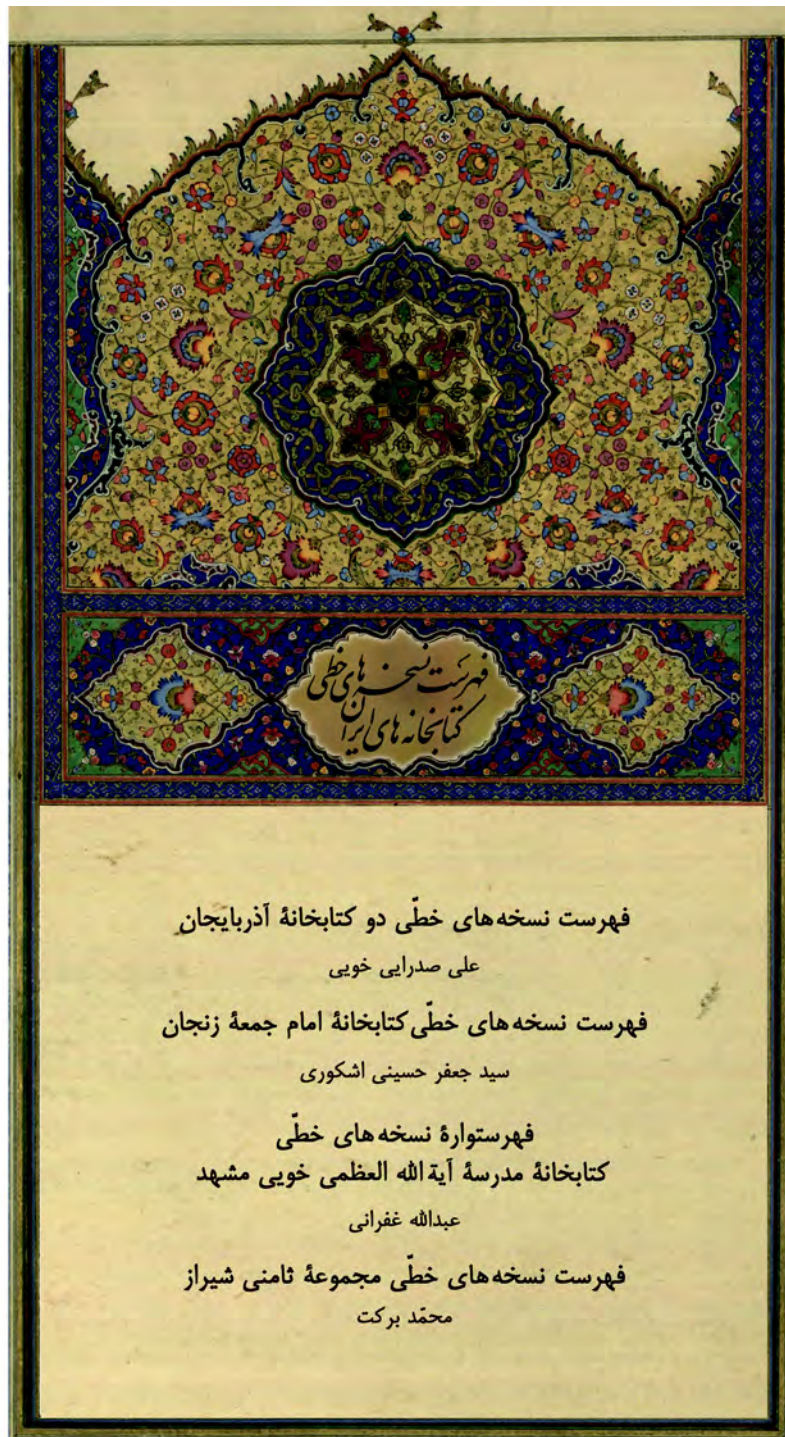 فهرست نسخه های خطی
کتابخانه های ایران
فهرست نسخه‌های خطّی دو کتابخانهٔ آذربایجان
علی صدرایی خویی
فهرست نسخه‌های خطّی کتابخانهٔ امام جمعهٔ زنجان
سید جعفر حسینی اشکوری
فهرستوارهٔ نسخه‌های خطّی
کتابخانهٔ مدرسهٔ آیة‌الله العظمی خویی مشهد
عبدالله غفرانی
فهرست نسخه‌های خطّی مجموعهٔ ثامنی شیراز
محمّد برکت